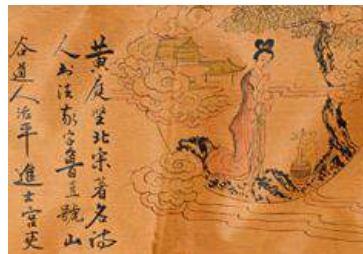 黄庭坚北宋著名诗
人书法家字鲁直號山
谷道人治平進士官吏